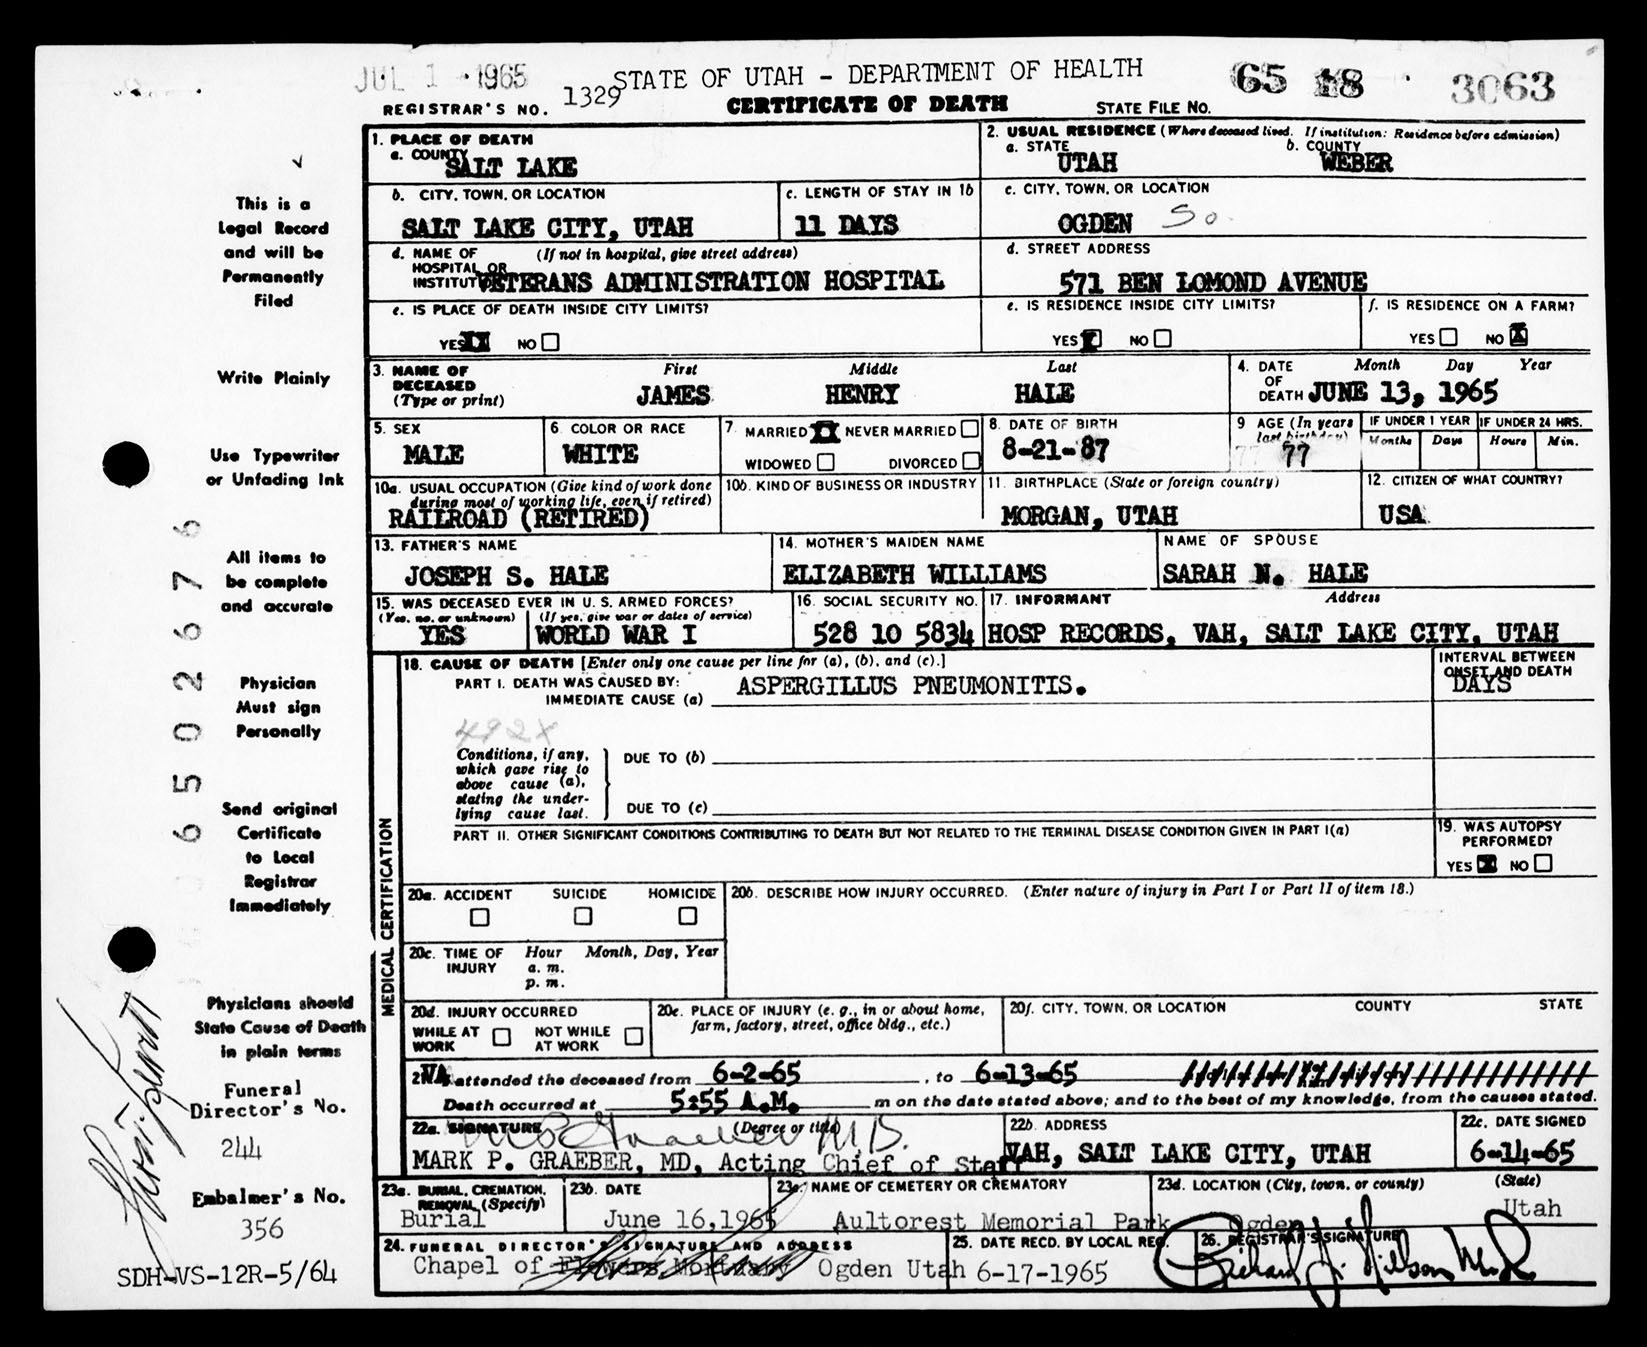 JUL 1 1965 STATE OF UTAH - DEPARTMENT OF HEALTH 65 18 3063
REGISTRAR'S NO. 1329 CERTIFICATE OF DEATH STATE FILE NO.
1. PLACE OF DEATH
a. COUNTY SALT LAKE
2. USUAL RESIDENCE (Where deceased lived. If institution: Residence before admission)
a. STATE UTAH b. COUNTY WEBER
b. CITY, TOWN, OR LOCATION SALT LAKE CITY, UTAH
c. LENGTH OF STAY IN 1b 11 DAYS
c. CITY, TOWN, OR LOCATION OGDEN So.
d. NAME OF HOSPITAL OR INSTITUTION (If not in hospital, give street address)
VETERANS ADMINISTRATION HOSPITAL
d. STREET ADDRESS
571 BEN LOMOND AVENUE
e. IS PLACE OF DEATH INSIDE CITY LIMITS?
YES XX NO
e. IS RESIDENCE INSIDE CITY LIMITS?
YES NO
f. IS RESIDENCE ON A FARM?
YES NO X
3. NAME OF DECEASED (Type or print)
First Middle Last
JAMES HENRY HALE
4. DATE OF DEATH Month Day Year
JUNE 13, 1965
5. SEX MALE
6. COLOR OR RACE WHITE
7. MARRIED XX NEVER MARRIED
WIDOWED DIVORCED
8. DATE OF BIRTH 8-21-87
9 AGE (In years last birthday) 77 77
IF UNDER 1 YEAR Months Days
IF UNDER 24 HRS. Hours Min.
10a. USUAL OCCUPATION (Give kind of work done during most of working life, even if retired)
RAILROAD (RETIRED)
10b. KIND OF BUSINESS OR INDUSTRY
11. BIRTHPLACE (State or foreign country)
MORGAN, UTAH
12. CITIZEN OF WHAT COUNTRY?
USA
13. FATHER'S NAME
JOSEPH S. HALE
14. MOTHER'S MAIDEN NAME
ELIZABETH WILLIAMS
NAME OF SPOUSE
SARAH N. HALE
15. WAS DECEASED EVER IN U.S. ARMED FORCES?
(Yes, no, or unknown) (If yes, give war or dates of service)
YES WORLD WAR I
16. SOCIAL SECURITY NO.
528 10 5834
17. INFORMANT Address
HOSP RECORDS, VAH, SALT LAKE CITY, UTAH
MEDICAL CERTIFICATION
18. CAUSE OF DEATH [Enter only one cause per line for (a), (b), and (c).]
INTERVAL BETWEEN ONSET AND DEATH
PART I. DEATH WAS CAUSED BY:
IMMEDIATE CAUSE (a) ASPERGILLUS PNEUMONITIS. DAYS
492X
Conditions, if any,
which gave rise to
above cause (a),
stating the under-
lying cause last.
DUE TO (b)
DUE TO (c)
PART II. OTHER SIGNIFICANT CONDITIONS CONTRIBUTING TO DEATH BUT NOT RELATED TO THE TERMINAL DISEASE CONDITION GIVEN IN PART I(a)
19. WAS AUTOPSY PERFORMED?
YES X NO
20a. ACCIDENT SUICIDE HOMICIDE
20b. DESCRIBE HOW INJURY OCCURRED. (Enter nature of injury in Part I or Part II of item 18.)
20c. TIME OF INJURY Hour Month, Day, Year
a. m.
p. m.
20d. INJURY OCCURRED
WHILE AT WORK NOT WHILE AT WORK
20e. PLACE OF INJURY (e. g., in or about home, farm, factory, street, office bldg., etc.)
20f. CITY, TOWN, OR LOCATION COUNTY STATE
21. VA attended the deceased from 6-2-65, to 6-13-65
Death occurred at 5:55 A.M. m on the date stated above; and to the best of my knowledge, from the causes stated.
22a. SIGNATURE (Degree or title)
M P Graeber M.D.
MARK P. GRAEBER, MD, Acting Chief of Staff
22b. ADDRESS
VAH, SALT LAKE CITY, UTAH
22c. DATE SIGNED
6-14-65
23a. BURIAL, CREMATION, REMOVAL (Specify)
Burial
23b. DATE
June 16, 1965
23c. NAME OF CEMETERY OR CREMATORY
Aultorest Memorial Park
23d. LOCATION (City, town, or county) (State)
Ogden Utah
24. FUNERAL DIRECTOR'S SIGNATURE AND ADDRESS
Chapel of Flowers Mortuary Ogden Utah
25. DATE RECD. BY LOCAL REG.
6-17-1965
26. REGISTRAR'S SIGNATURE
Richard J. Nielson
This is a
Legal Record
and will be
Permanently
Filed
Write Plainly
Use Typewriter
or Unfading Ink
All items to
be complete
and accurate
Physician
Must sign
Personally
Send original
Certificate
to Local
Registrar
Immediately
Physicians should
State Cause of Death
in plain terms
Funeral
Director's No.
244
Embalmer's No.
356
SDH-VS-12R-5/64
65 02676